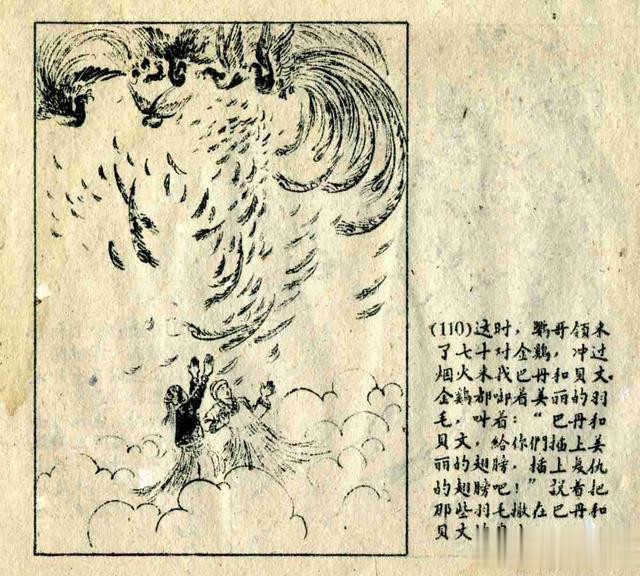 (110)这时，鹦哥領来
了七十对金鷄，冲过
烟火来找巴丹和貝文。
金鷄都啣着美丽的羽
毛，叫着：“巴丹和
貝文，給你們插上美
丽的翅膀，插上复仇
的翅膀吧！”説着把
那些羽毛撒在巴丹和
貝文